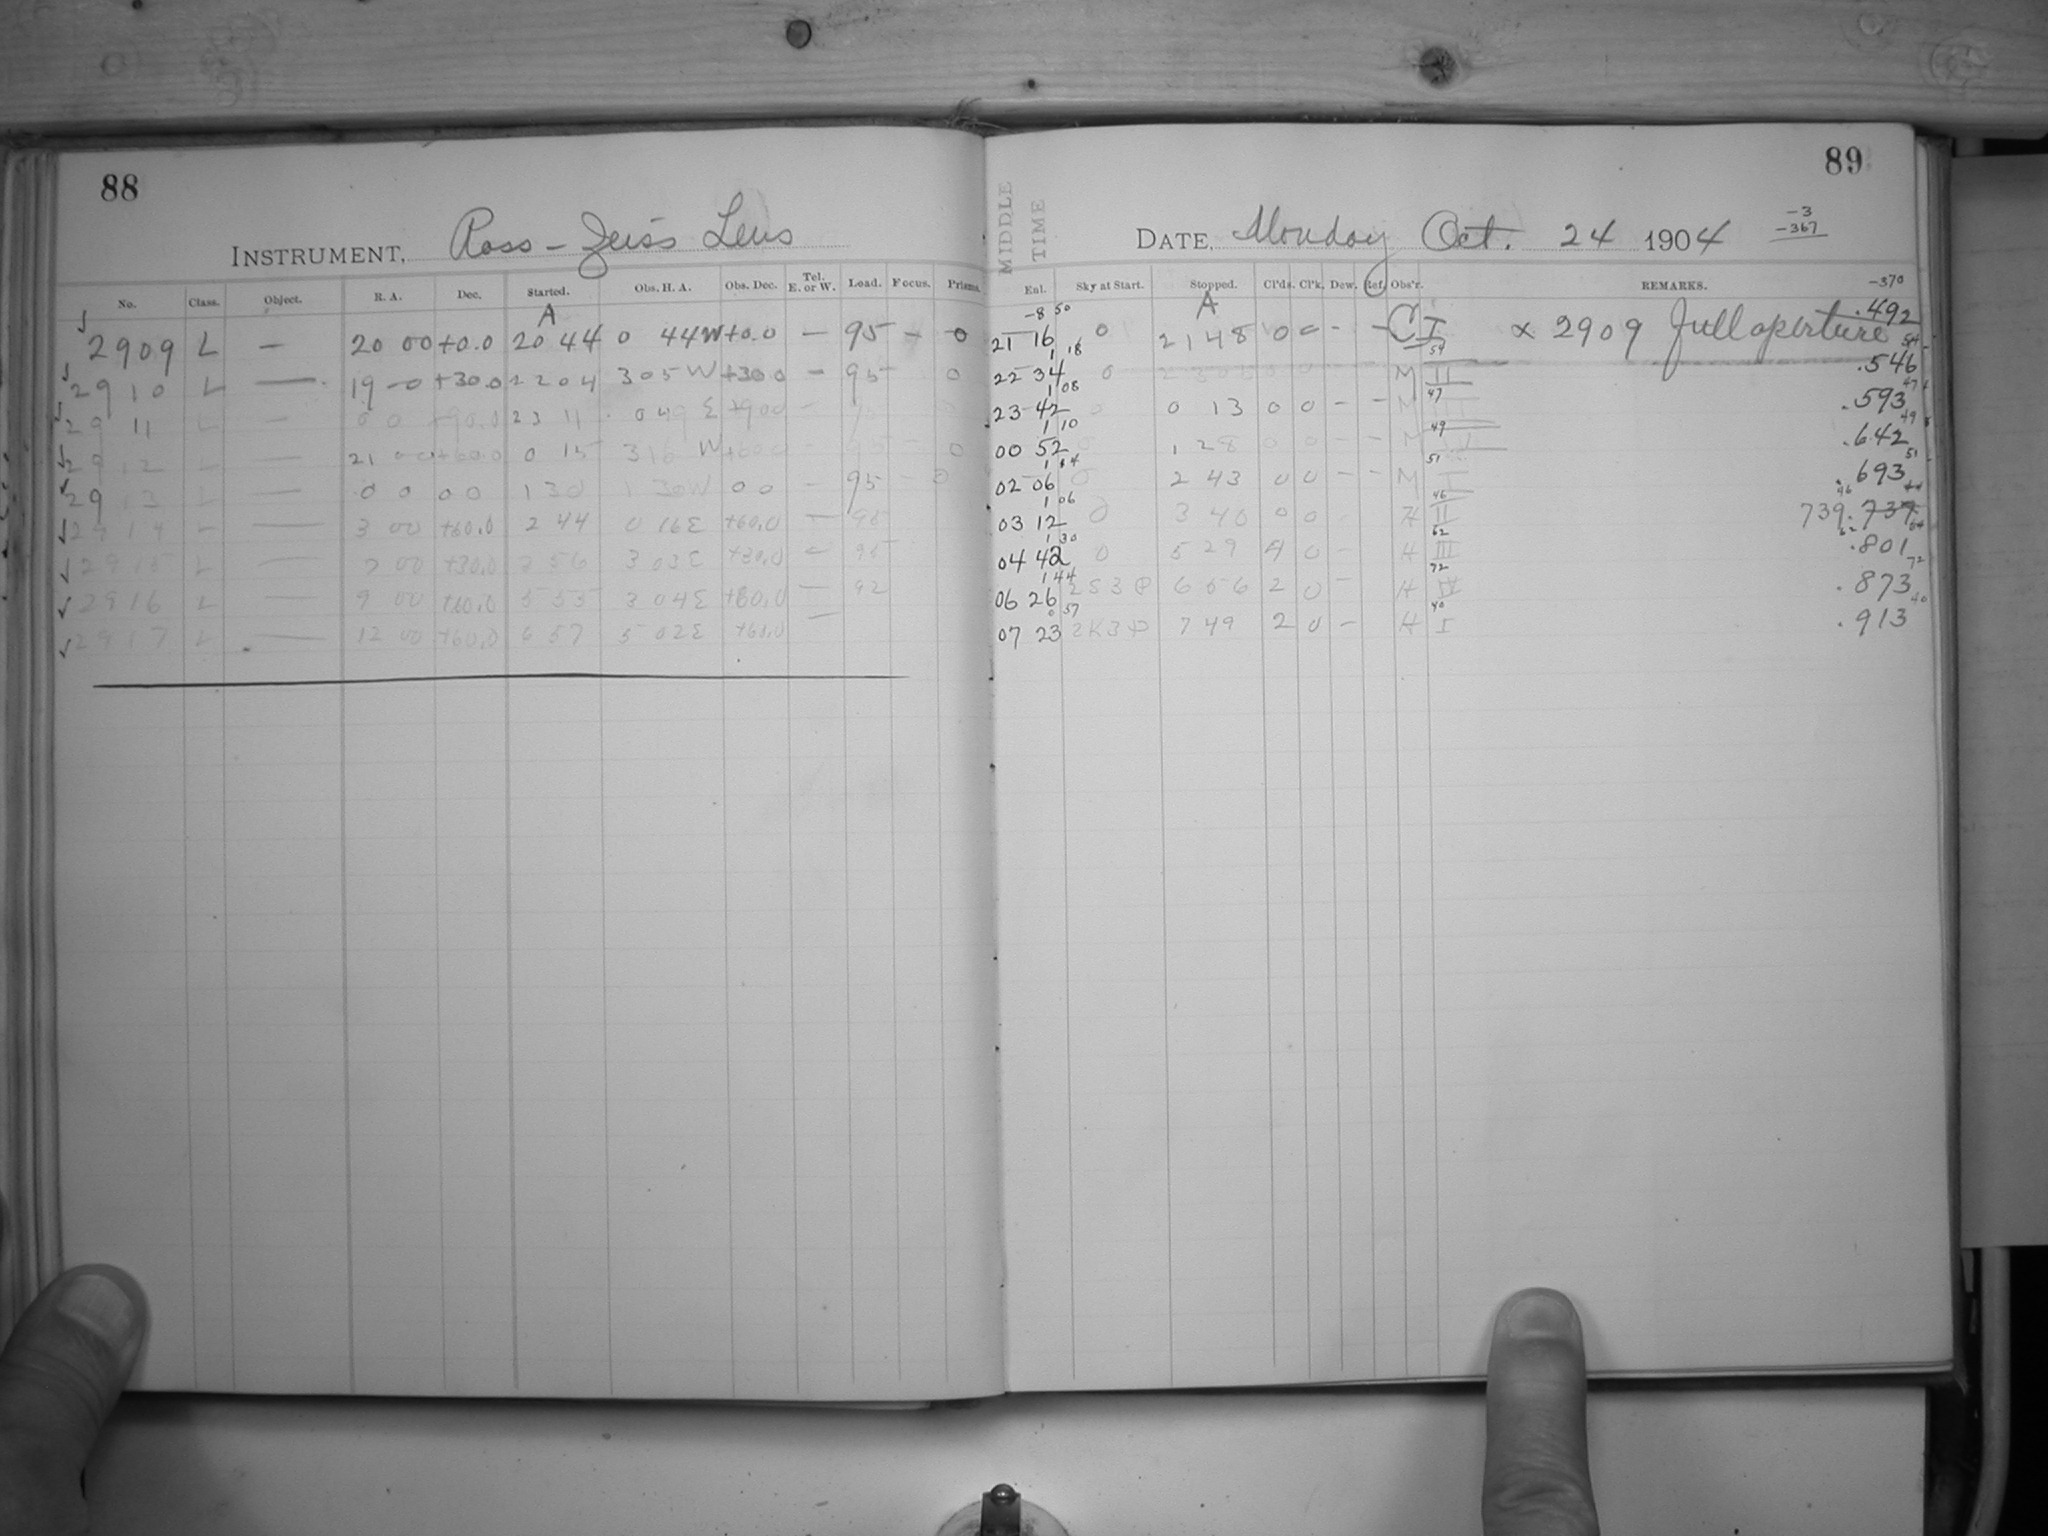 88
INSTRUMENT, Ross-Zeiss Lens
No. Class. Object. R. A. Dec. Started. Obs. H. A. Obs. Dec. Tel. E. or W. Load. Focus. Prisms.
A
2909 L — 20 00 +0.0 20 44 0 44 W +0.0 — 95 - 0
2910 L — 19 -0 +30.0 2204 305 W +300 - 95 0
2911 L — 0 0 +90.0 23 11 0 49 E +900 -
2912 L — 21 00 +60.0 0 15 316 W +600 0
2913 L — 0 0 00 130 1 30W 00 - 95 - 0
2914 L — 3 00 +60.0 2 44 0 16E +60.0 — 95
2915 L — 7 00 +30.0 3 56 3 03E +30.0 - 95
2916 L — 9 00 +60.0 5 55 3 04E +60.0 — 92
2917 L — 12 00 +60.0 6 57 5 02E +60.0 —
89
MIDDLE
TIME
DATE, Monday Oct. 24 1904
-3
-367
Exl. Sky at Start. Stopped. Cl'ds. Cl'k. Dew. Ref. Obs'r. REMARKS. -370
-8 50 A .492
21 16 0 2148 0 0 - - C I × 2909 Full aperture
1 18 54 54
22 34 0 M II .546
1 08 47 47
23 42 0 13 0 0 - - M .593
1 10 49 49
00 52 1 28 0 0 - - M .642
1 14 51 51
02 06 0 2 43 0 0 - - M I .693
1 06 46 46 44
03 12 0 3 40 0 0 H II 739 .737
1 30 62 62 64
04 42 0 5 29 4 0 - H III .801
1 44 72 72
06 26 2S3P 6 56 2 0 - H IV .873
0 57 40 40
07 23 2K3P 7 49 2 0 - H I .913